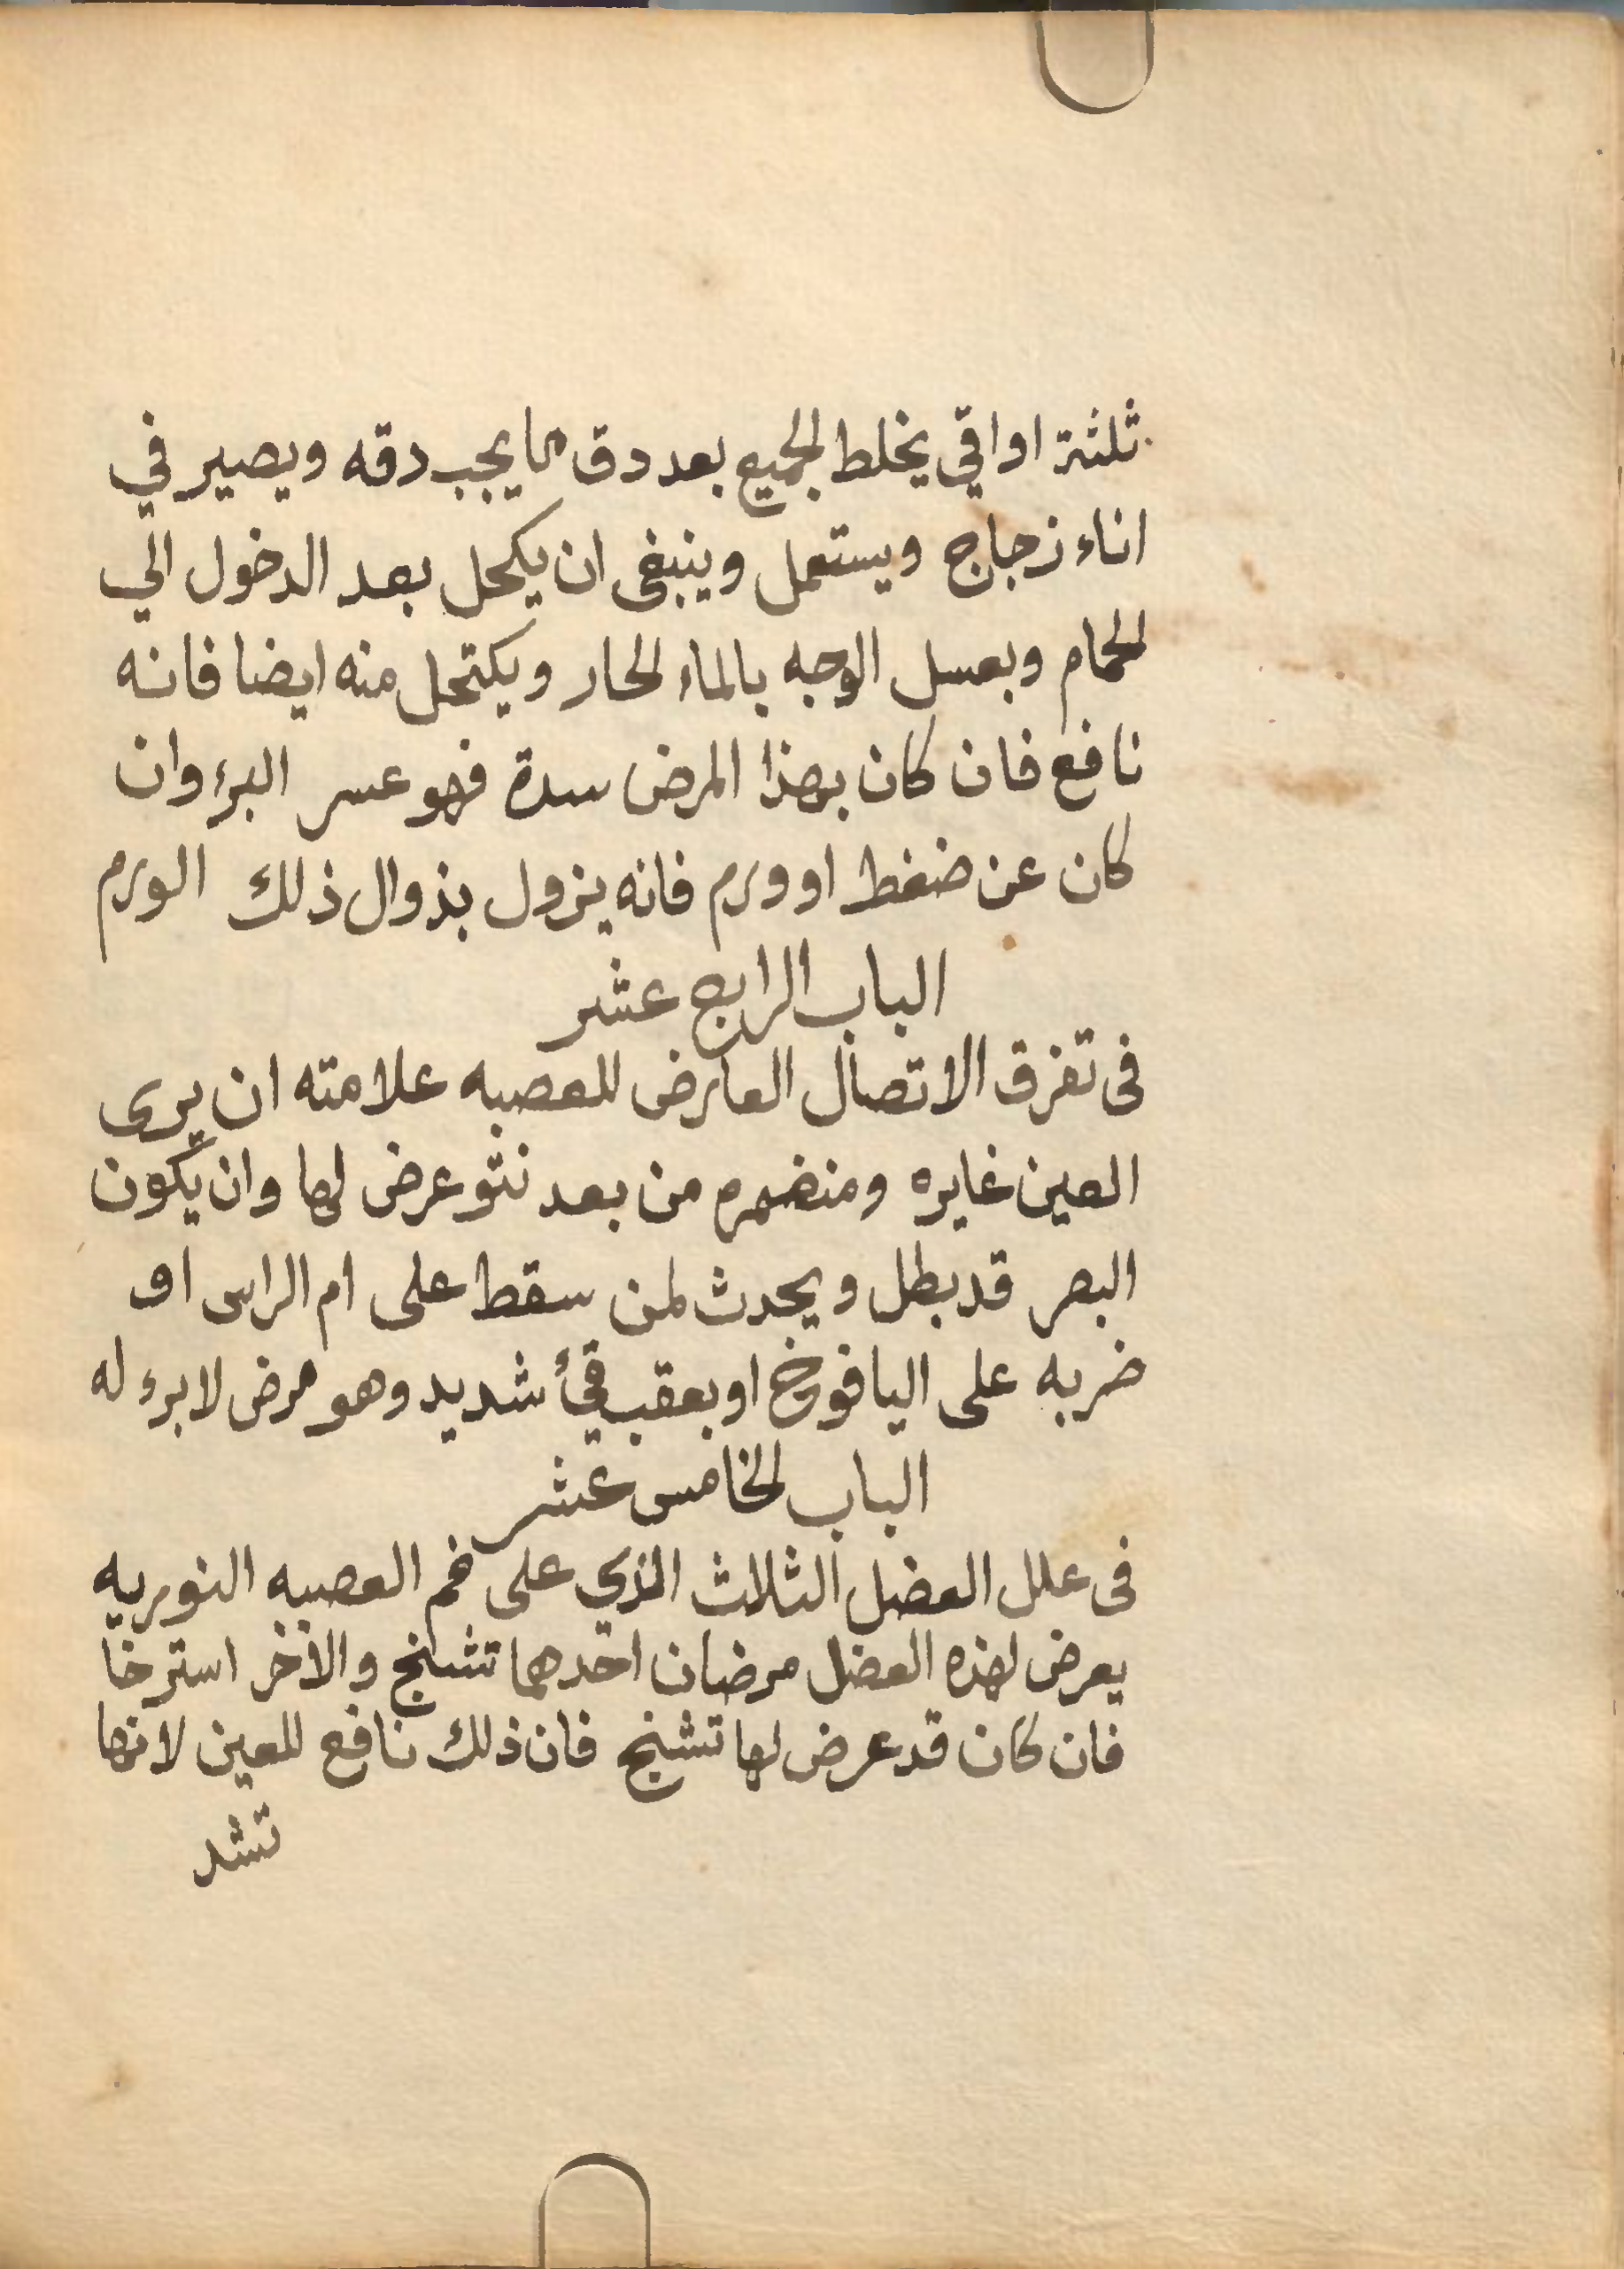 ثلثة اواقي يخلط الجميع بعد دق ما يجب دقه ويصير في
اناء زجاج ويستعمل وينبغى ان يكحل بعد الدخول الي
الحمام وبعسل الوجه بالماء الحار ويكتحل منه ايضا فانه
نافع فان كان بهذا المرض سدة فهو عسر البرء وان
كان عن ضغط او ورم فانه يزول بذوال ذلك الورم
الباب الرابع عشر
فى تفرق الاتصال العارض للعصبه علامته ان يرى
العين غايره ومنضمرم من بعد نثو عرض لها وان يكون
البصر قد بطل ويحدث لمن سقط على ام الراس او
ضربه على اليافوخ او بعقب قئ شديد وهو مرض لا برء له
الباب الخامس عشر
فى علل العضل الثلاث الذي على فم العصبه النوريه
يعرض لهذه العضل مرضان احدهما تشنج والاخر استرخا
فان كان قد عرض لها تشنج فان ذلك نافع للعين لانها
تشد